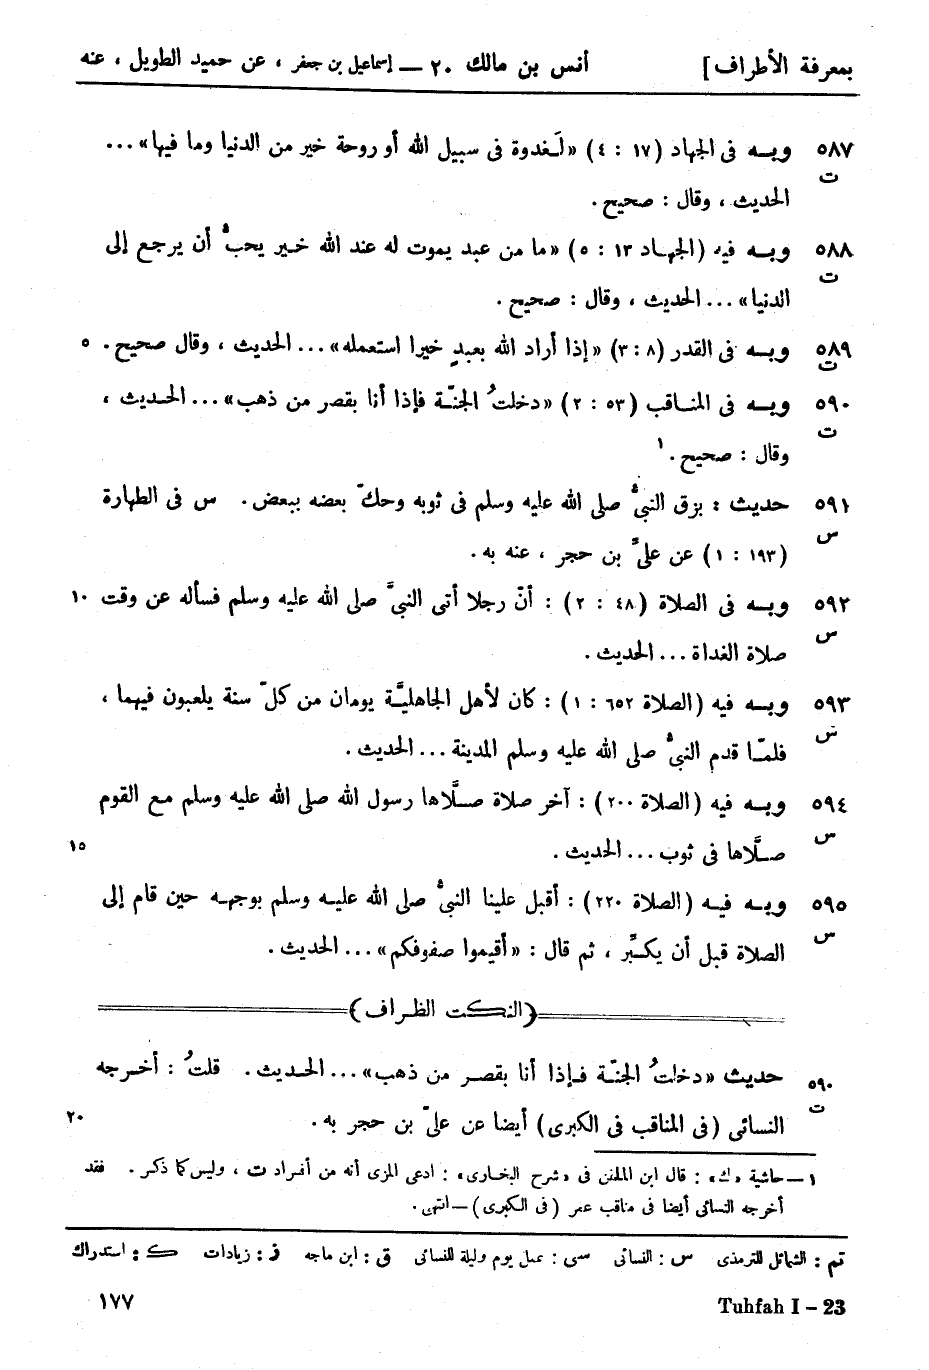 بمعرفة الأطراف] أنس بن مالك ٢٠ — إسماعيل بن جعفر ، عن حميد الطويل ، عنه
٥٨٧ وبـه فى الجهاد (١٧ : ٤) «لَغدوة فى سبيل الله أو روحة خير من الدنيا وما فيها» ...
ت
الحديث ، وقال : صحيح .
٥٨٨ وبـه فيه (الجهـاد ١٣ : ٥) «ما من عبد يموت له عند الله خـير يحبُّ أن يرجع إلى
ت
الدنيا» ... الحديث ، وقال : صحيح .
٥٨٩ وبـه فى القدر (٨ : ٣) «إذا أراد الله بعبدٍ خيرا استعمله» ... الحديث ، وقال صحيح . ٥
ت
٥٩٠ وبـه فى المنـاقب (٥٣ : ٢) «دخلتُ الجنّـة فإذا أنا بقصر من ذهب» ... الحـديث ،
ت
وقال : صحيح . ١
٥٩١ حديث : بزق النبيُّ صلى الله عليه وسلم فى ثوبه وحكّ بعضه ببعض . س فى الطهارة
س
(١٩٣ : ١) عن علىّ بن حجر ، عنه به .
٥٩٢ وبـه فى الصلاة (٤٨ : ٢) : أنّ رجلا أتى النبيَّ صلى الله عليه وسلم فسأله عن وقت ١٠
س
صلاة الغداة ... الحديث .
٥٩٣ وبـه فيه (الصلاة ٦٥٢ : ١) : كان لأهل الجاهليَّة يومان من كلّ سنة يلعبون فيهما ،
س
فلمّـا قدم النبيُّ صلى الله عليه وسلم المدينة ... الحديث .
٥٩٤ وبـه فيه (الصلاة ٢٠٠) : آخر صلاة صـلَّاها رسول الله صلى الله عليه وسلم مع القوم
س
صـلَّاها فى ثوب ... الحديث . ١٥
٥٩٥ وبـه فيـه (الصلاة ٢٢٠) : أقبل علينا النبيُّ صلى الله عليـه وسلم بوجهـه حين قام إلى
س
الصلاة قبل أن يكبّر ، ثم قال : «أقيموا صفوفكم» ... الحديث .
(النكت الظراف)
٥٩٠ حديث «دخلتُ الجنّـة فـإذا أنا بقصـر من ذهب» ... الحـديث . قلتُ : أخـرجه
ت
النسائى (فى المناقب فى الكبرى) أيضا عن علىّ بن حجر به . ٢٠
١ — حاشية «ك» : قال ابن الملقن فى «شرح البخارى» : ادعى المزى أنه من أفـراد ت ، وليس كما ذكر . فقد
أخرجه النسائى أيضا فى مناقب عمر (فى الكبرى) — انتهى .
تم : الشمائل للترمذى س : النسائى سى : عمل يوم وليلة للنسائى ق : ابن ماجه ز : زيادات ك : استدراك
Tuhfah I – 23 ١٧٧